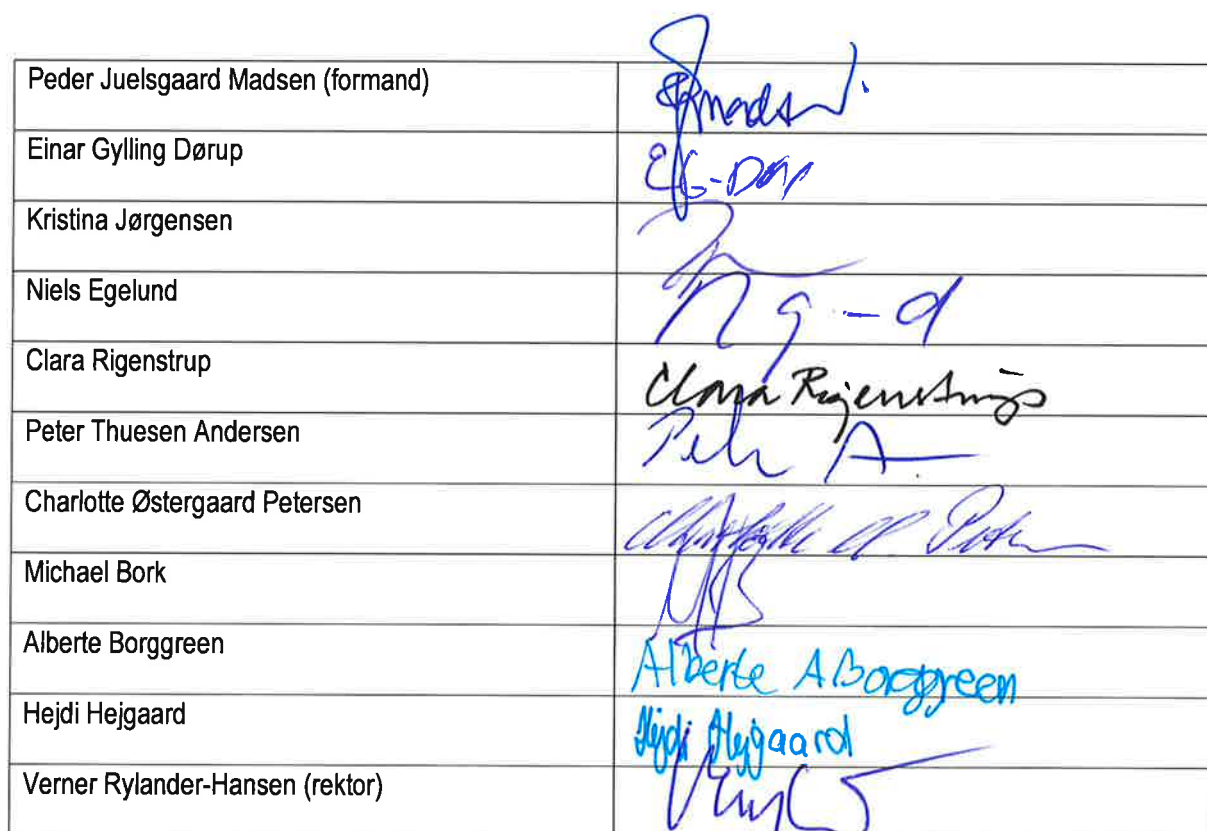 Peder Juelsgaard Madsen (formand)
Einar Gylling Dørup
Kristina Jørgensen
Niels Egelund
Clara Rigenstrup Clara Rigenstrup
Peter Thuesen Andersen
Charlotte Østergaard Petersen
Michael Bork
Alberte Borggreen Alberte A Borggreen
Hejdi Hejgaard Hejdi Hejgaard
Verner Rylander-Hansen (rektor)